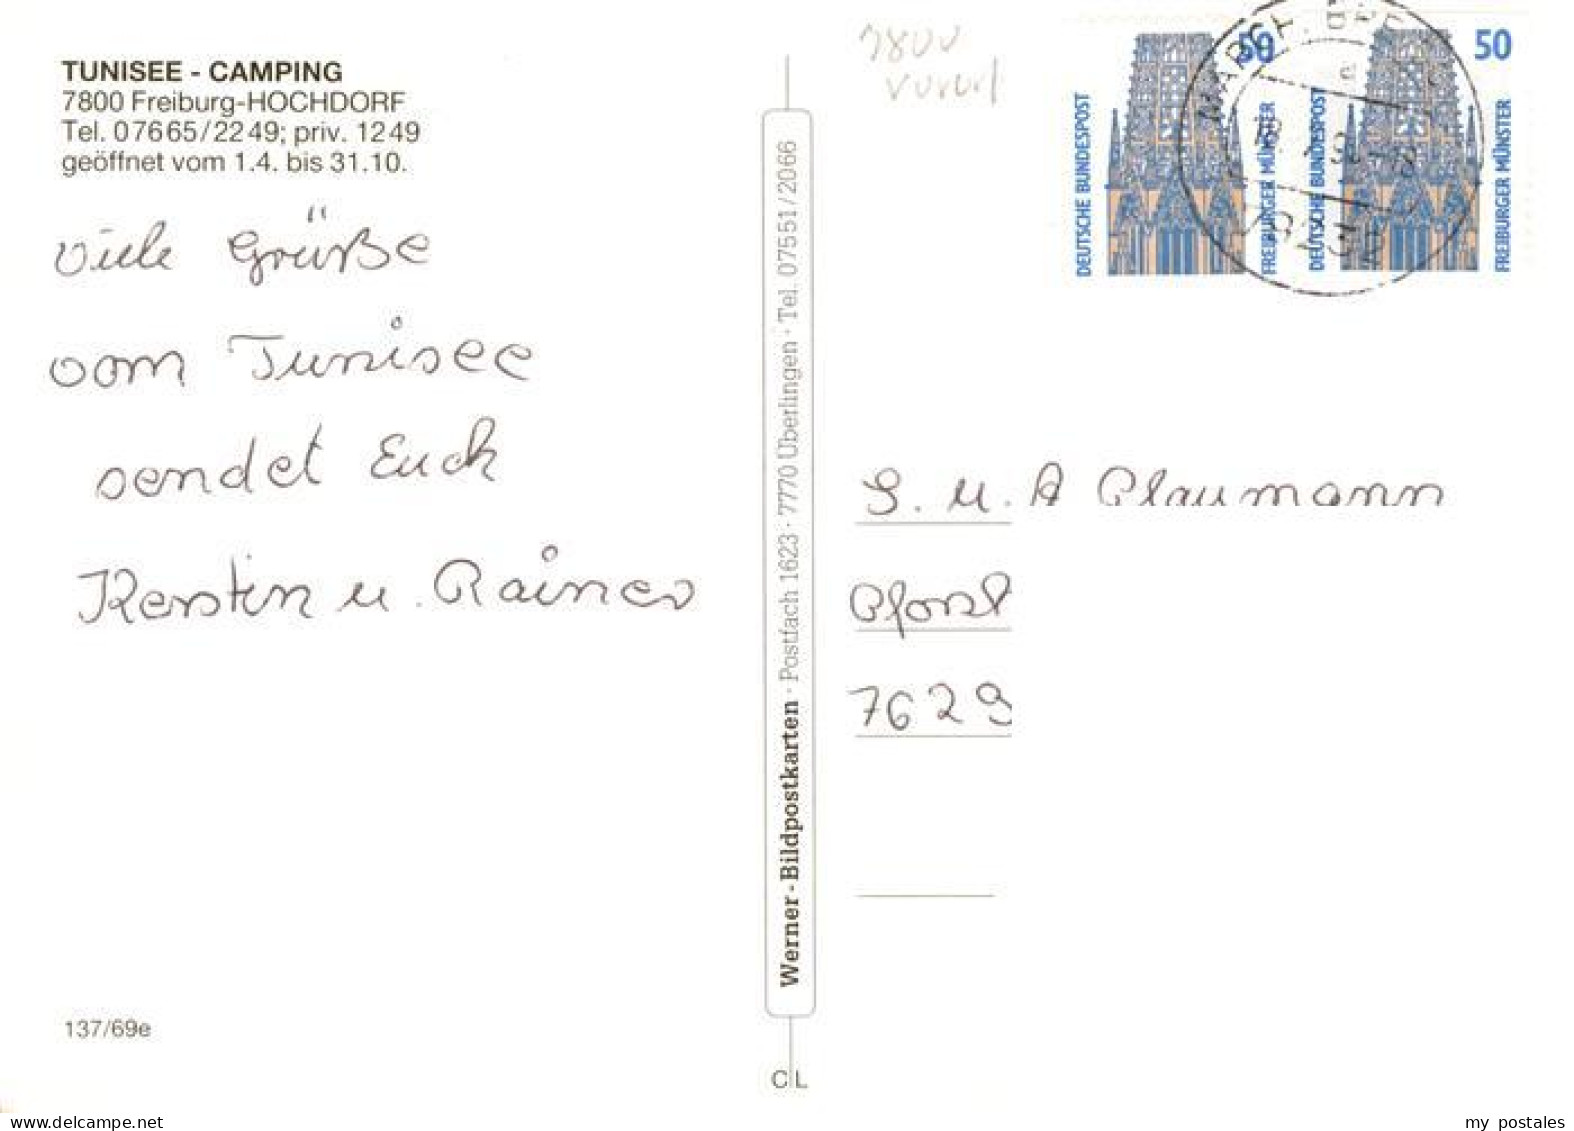 TUNISEE - CAMPING
7800 Freiburg-HOCHDORF
Tel. 07665/2249; priv. 1249
geöffnet vom 1.4. bis 31.10.
Viele Grüße
vom Tunisee
sendet Euch
Kerstin u. Rainer
137/69e
Werner-Bildpostkarten · Postfach 1623 · 7770 Überlingen · Tel. 07551/2066
CL
7800
DEUTSCHE BUNDESPOST
50
FREIBURGER MÜNSTER
DEUTSCHE BUNDESPOST
50
FREIBURGER MÜNSTER
MARCH
S. u. A Plaumann
Pforst
7629
delcampe.net
my postales